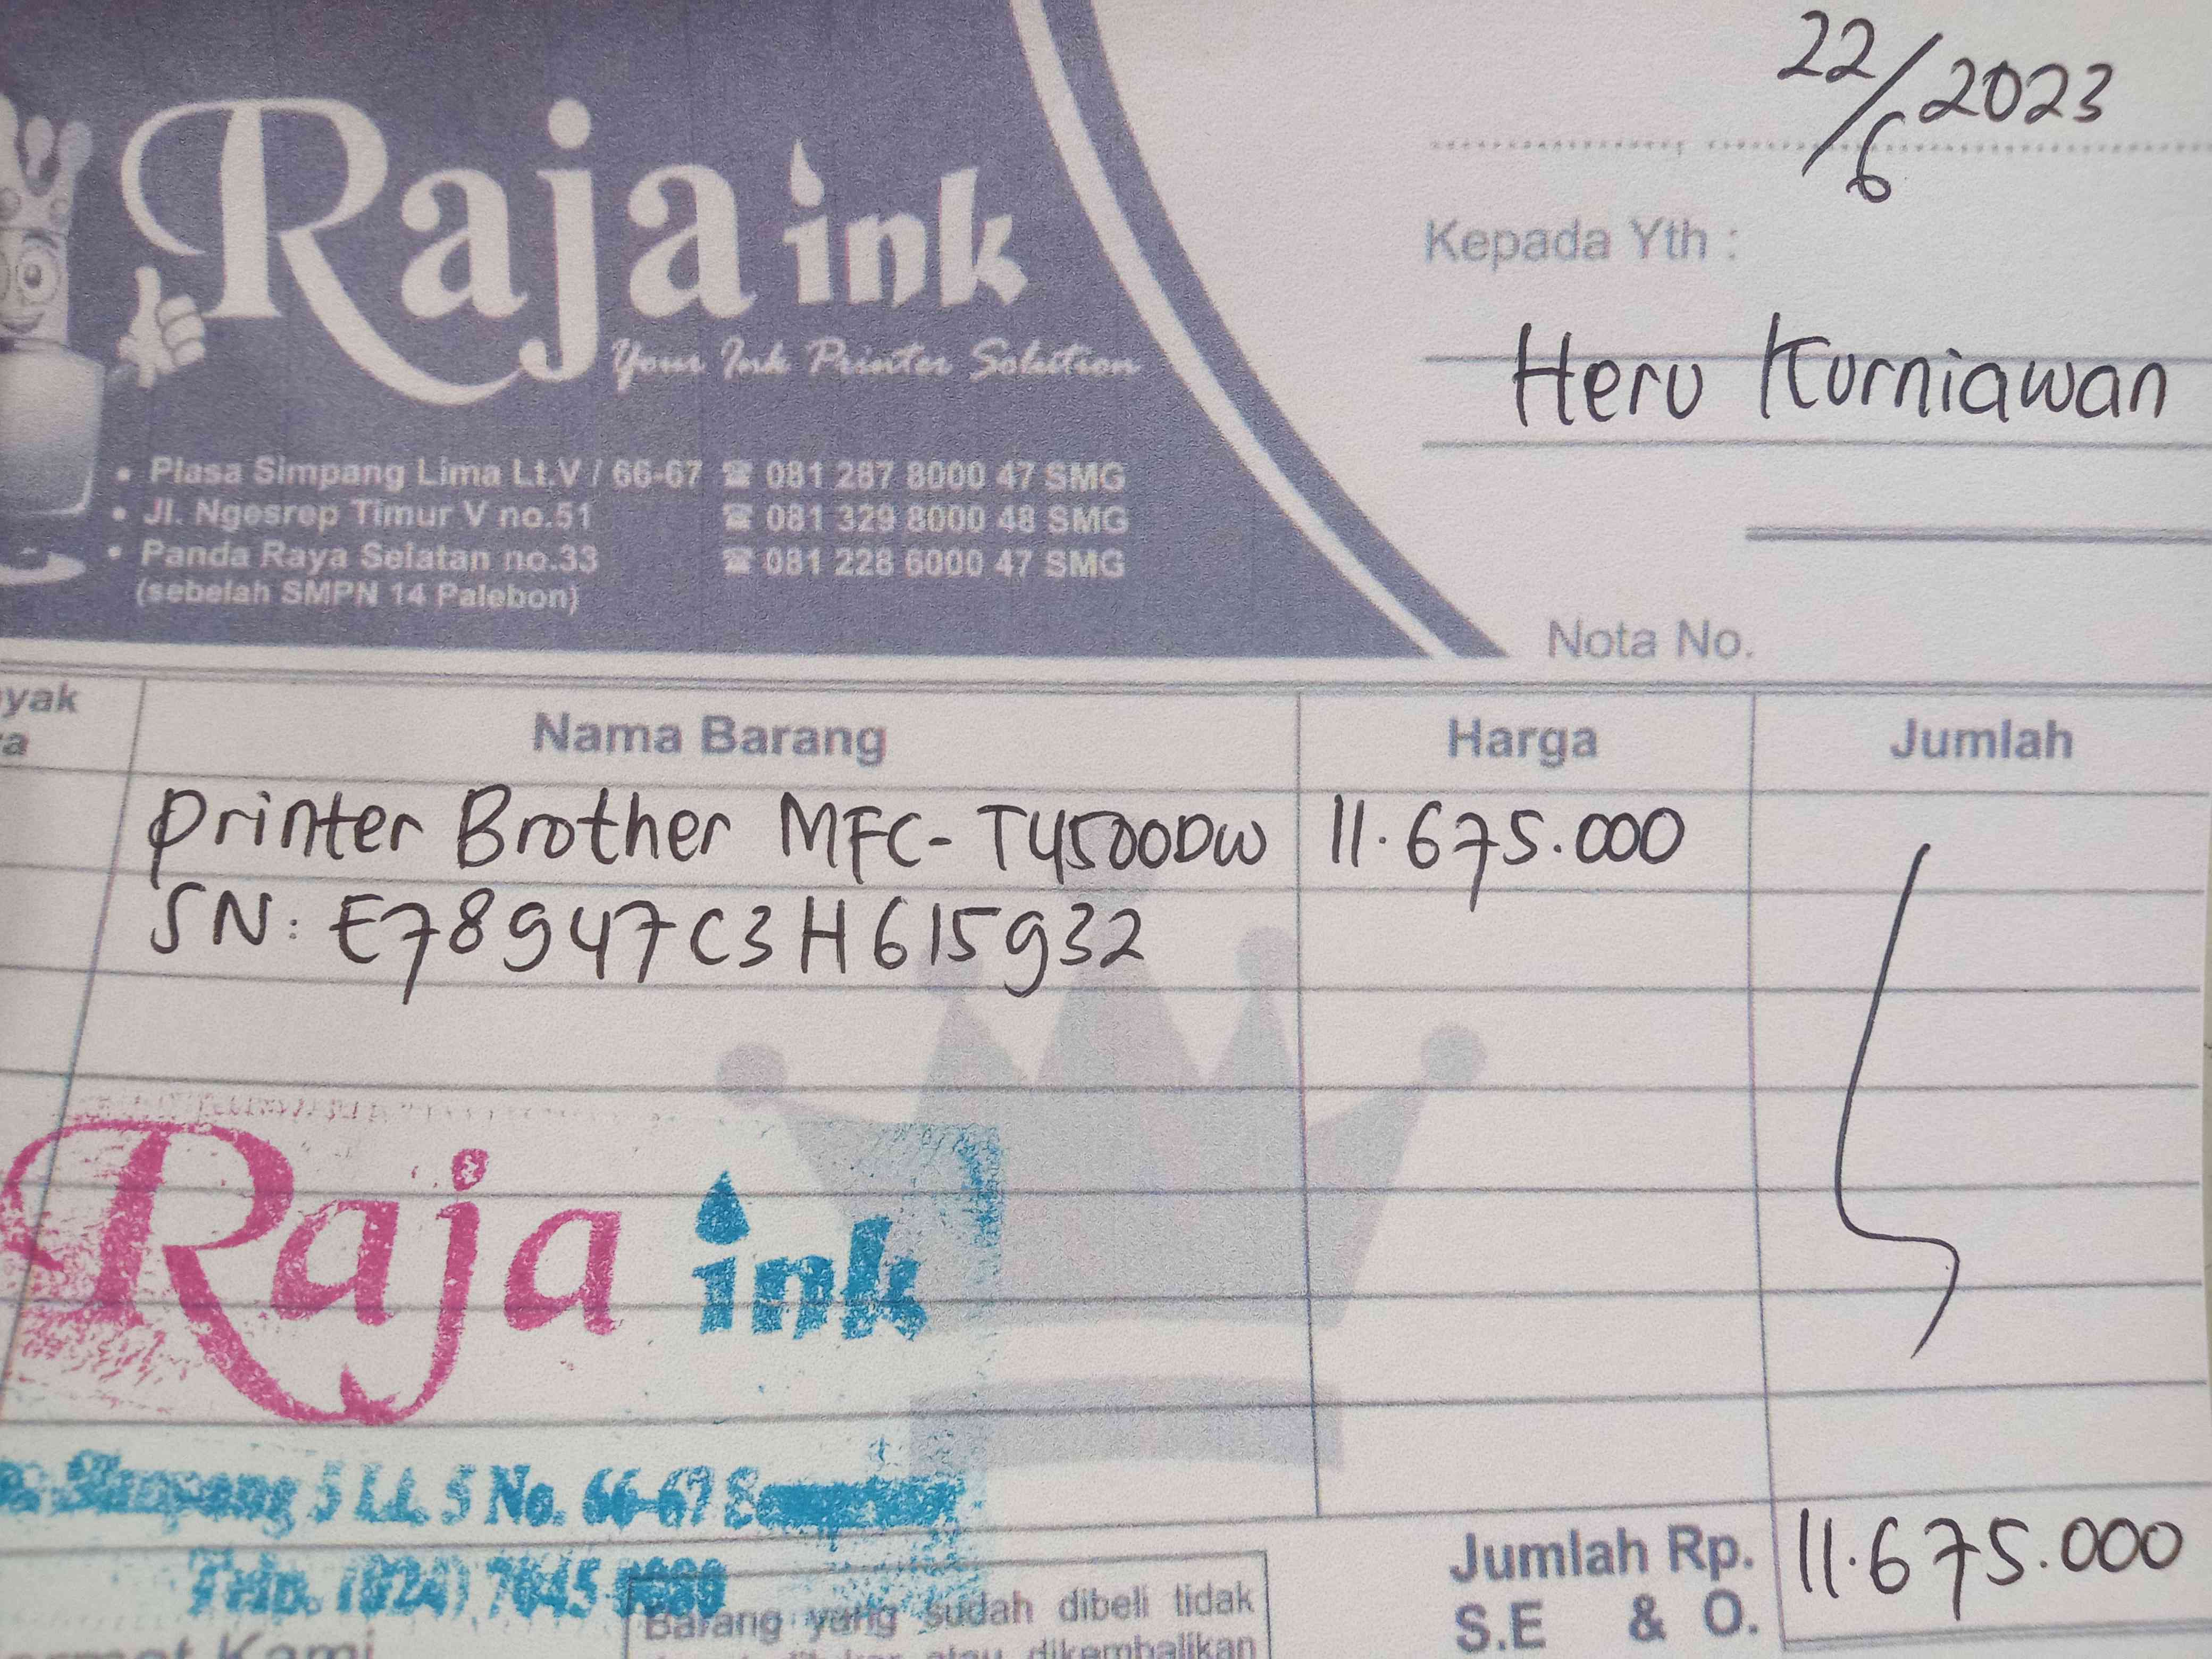 22/6 2023
Raja ink
Your Ink Printer Solution
Kepada Yth :
Heru Kurniawan
• Plasa Simpang Lima Lt.V / 66-67 ☎ 081 287 8000 47 SMG
• Jl. Ngesrep Timur V no.51 ☎ 081 329 8000 48 SMG
• Panda Raya Selatan no.33 ☎ 081 228 6000 47 SMG
(sebelah SMPN 14 Palebon)
Nota No.
yak
a
Nama Barang Harga Jumlah
Printer Brother MFC-T4500DW 11.675.000
SN: E78947C3H615932
Raja ink
Simpang 5 Lt. 5 No. 66-67
Telp. (024) 7645
Jumlah Rp. 11.675.000
S.E & O.
Barang yang sudah dibeli tidak
atau dikembalikan
Kami